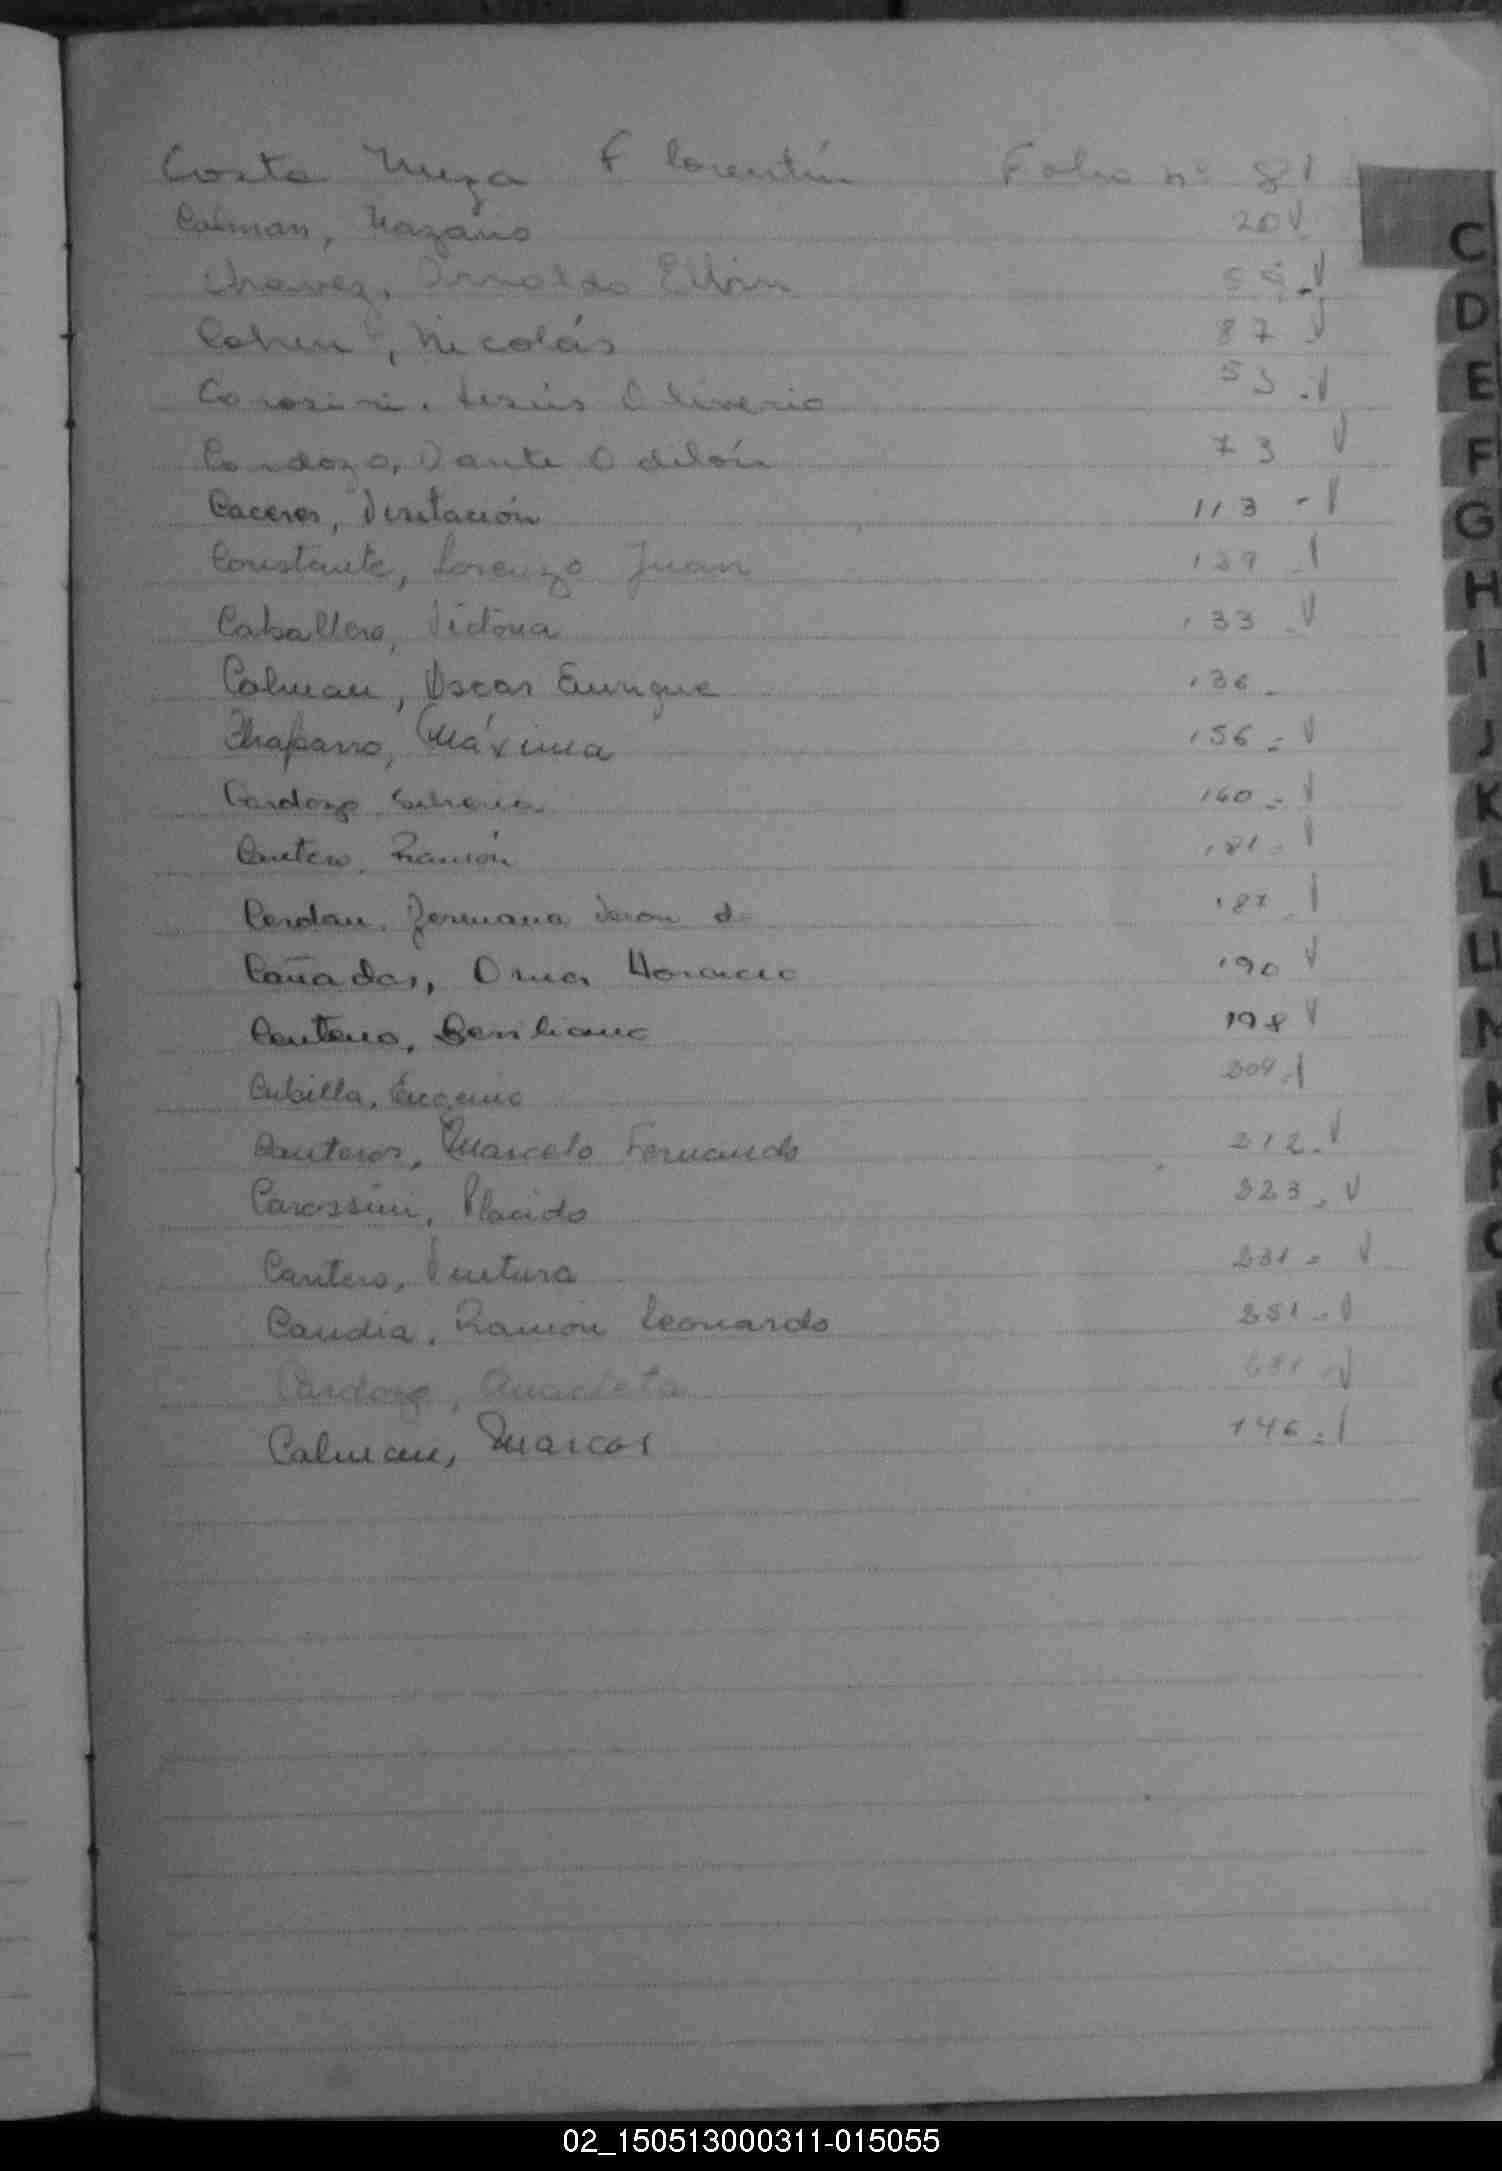 Costa Meza Florentín Folio nº 81
Colman, Nazario 20 √
Chavez, Arnaldo 55.√
Cohen, Nicolás 87 √
Corosini, Jesús Oliverio 53.√
Cardozo, Dante Odilón 73 √
Caceres, Visitación 113 -√
Constante, Lorenzo Juan 129 √
Caballero, Victoria 133 √
Colman, Oscar Enrique 136
Chaparro, Máxima 156 = √
Cardozo 160 = √
Cantero, Ramón 181 = √
Cerdan, Germana de 187 √
Cañadas, Omar Horacio 190 √
Centeno, Basiliano 198 √
Cubilla, Eugenio 209.√
Canteros, Marcelo Fernando 212.√
Carossini, Placido 223. √
Cantero, Ventura 231 = √
Candia, Ramón Leonardo 251 -√
Cardozo, Anacleta √
Colman, Marcos 146 = √
C
D
E
F
G
H
I
J
K
L
LL
M
N
02_150513000311-015055